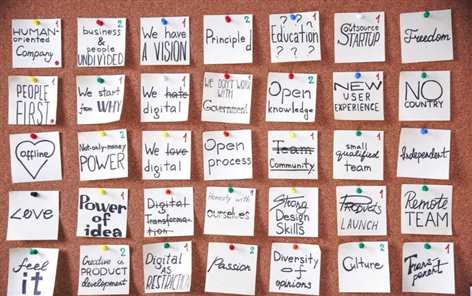 HUMAN-
oriented
Company.
2
business
&
people
UNDIVIDED
1
We have
A VISION
2
Principled
1
Education
? ? ?
1
Outsource
STARTUP
Freedom
PEOPLE
FIRST.
1
We start
from WHY
1
We hate
digital
1
We DON'T WORK
WITH
Government
2
Open
knowledge
NEW
USER
EXPERIENCE
NO
COUNTRY
offline
Not-only-money
POWER
1
We love
digital
Open
process
1
Team
Community.
1
small
qualified
team
Independent
Love
1
Power of
idea
1
Digital
Transforma-
tion
1
Honesty with
ourselves
Strong
Design
Skills
1
Products
LAUNCH
Remote
TEAM
feel
it
2
Creative is
PRODUCT
DEVELOPMENT
1
Digital
AS
RESTRICTION
Passion
2
Diversity
of
opinions
2
Culture
1
Trans-
parent